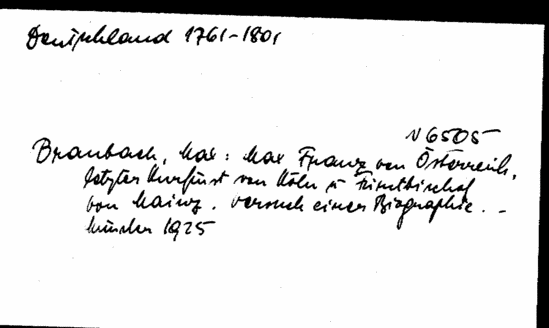 Deutschland 1761-1801
N 6505
Braubach, Max: Max Franz von Österreich,
letzter Kurfürst von Köln u Fürstbischof
von Mainz. Versuch einer Biographie. -
Münster 1925